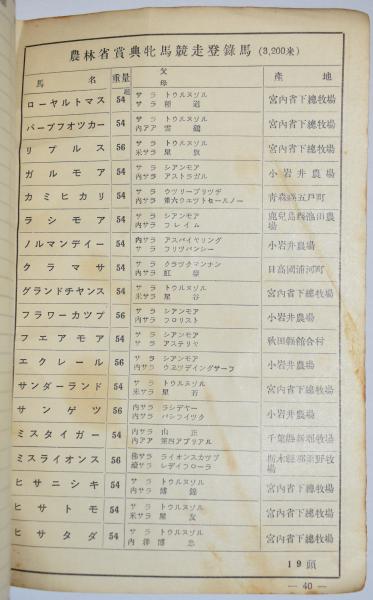 農林省賞典牝馬競走登錄馬 (3,200米)
馬名 重量 父 母 產地
ローヤルトマス 54 サラ トウルヌソル 宮內省下總牧場
サラ 種道
パープフオツカー 54 サラ トウルヌソル 宮內省下總牧場
內アア 雲鶴
リプルス 56 サラ トウルヌソル 宮內省下總牧場
米サラ 星旗
ガルモア 54 サラ シアンモア 小岩井農場
內サラ アストラガル
カミヒカリ 54 サラ ウツリープリツヂ 青森縣五戶町
內サラ 第六ウエツトセールノー
ラシモア 54 サラ シアンモア 鹿兒島縣池田農場
內サラ フレイム
ノルマンデイー 54 內サラ アスパイヤリング 小岩井農場
サラ フリツパンシー
クラマサ 54 サラ クラツクマンナン 日高國浦河町
內サラ
グランドチヤンス 54 サラ トウルヌソル 宮內省下總牧場
米サラ 星谷
フラワーカツプ 56 サラ シアンモア 小岩井農場
內サラ フロリスト
フエアモア 54 サラ シアンモア 秋田縣館合村
サラ アステリヤ
エクレール 56 サラ シアンモア 小岩井農場
內サラ ウエツデイングサーフ
サンダーランド 54 サラ トウルヌソル 宮內省下總牧場
米サラ 星若
サンゲツ 56 內サラ ラシデヤー 小岩井農場
內サラ パシフイツク
ミスタイガー 54 內サラ 山正 千葉縣新堀牧場
內アア 第四アプリアル
ミスライオンス 56 佛サラ ライオンスカツプ 栃木縣那須野牧場
濠サラ レデイフローラ
ヒサニシキ 54 サラ トウルヌソル 宮內省下總牧場
內サラ 博錦
ヒサトモ 54 サラ トウルヌソル 宮內省下總牧場
米サラ 星友
ヒサタダ 54 サラ トウルヌソル 宮內省下總牧場
內洋 博忠
19頭
— 40 —